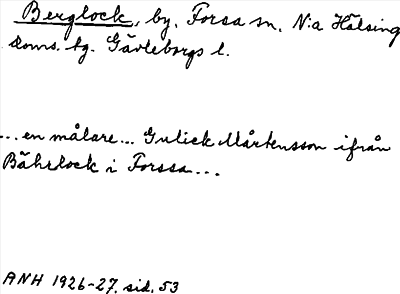 Berglock, by, Forsa sn, N:a Hälsing
doms. tg. Gävleborgs l.
... en målare... Gulick Mårtensson ifrån
Bährlock i Forssa...
ANH 1926-27, sid. 53